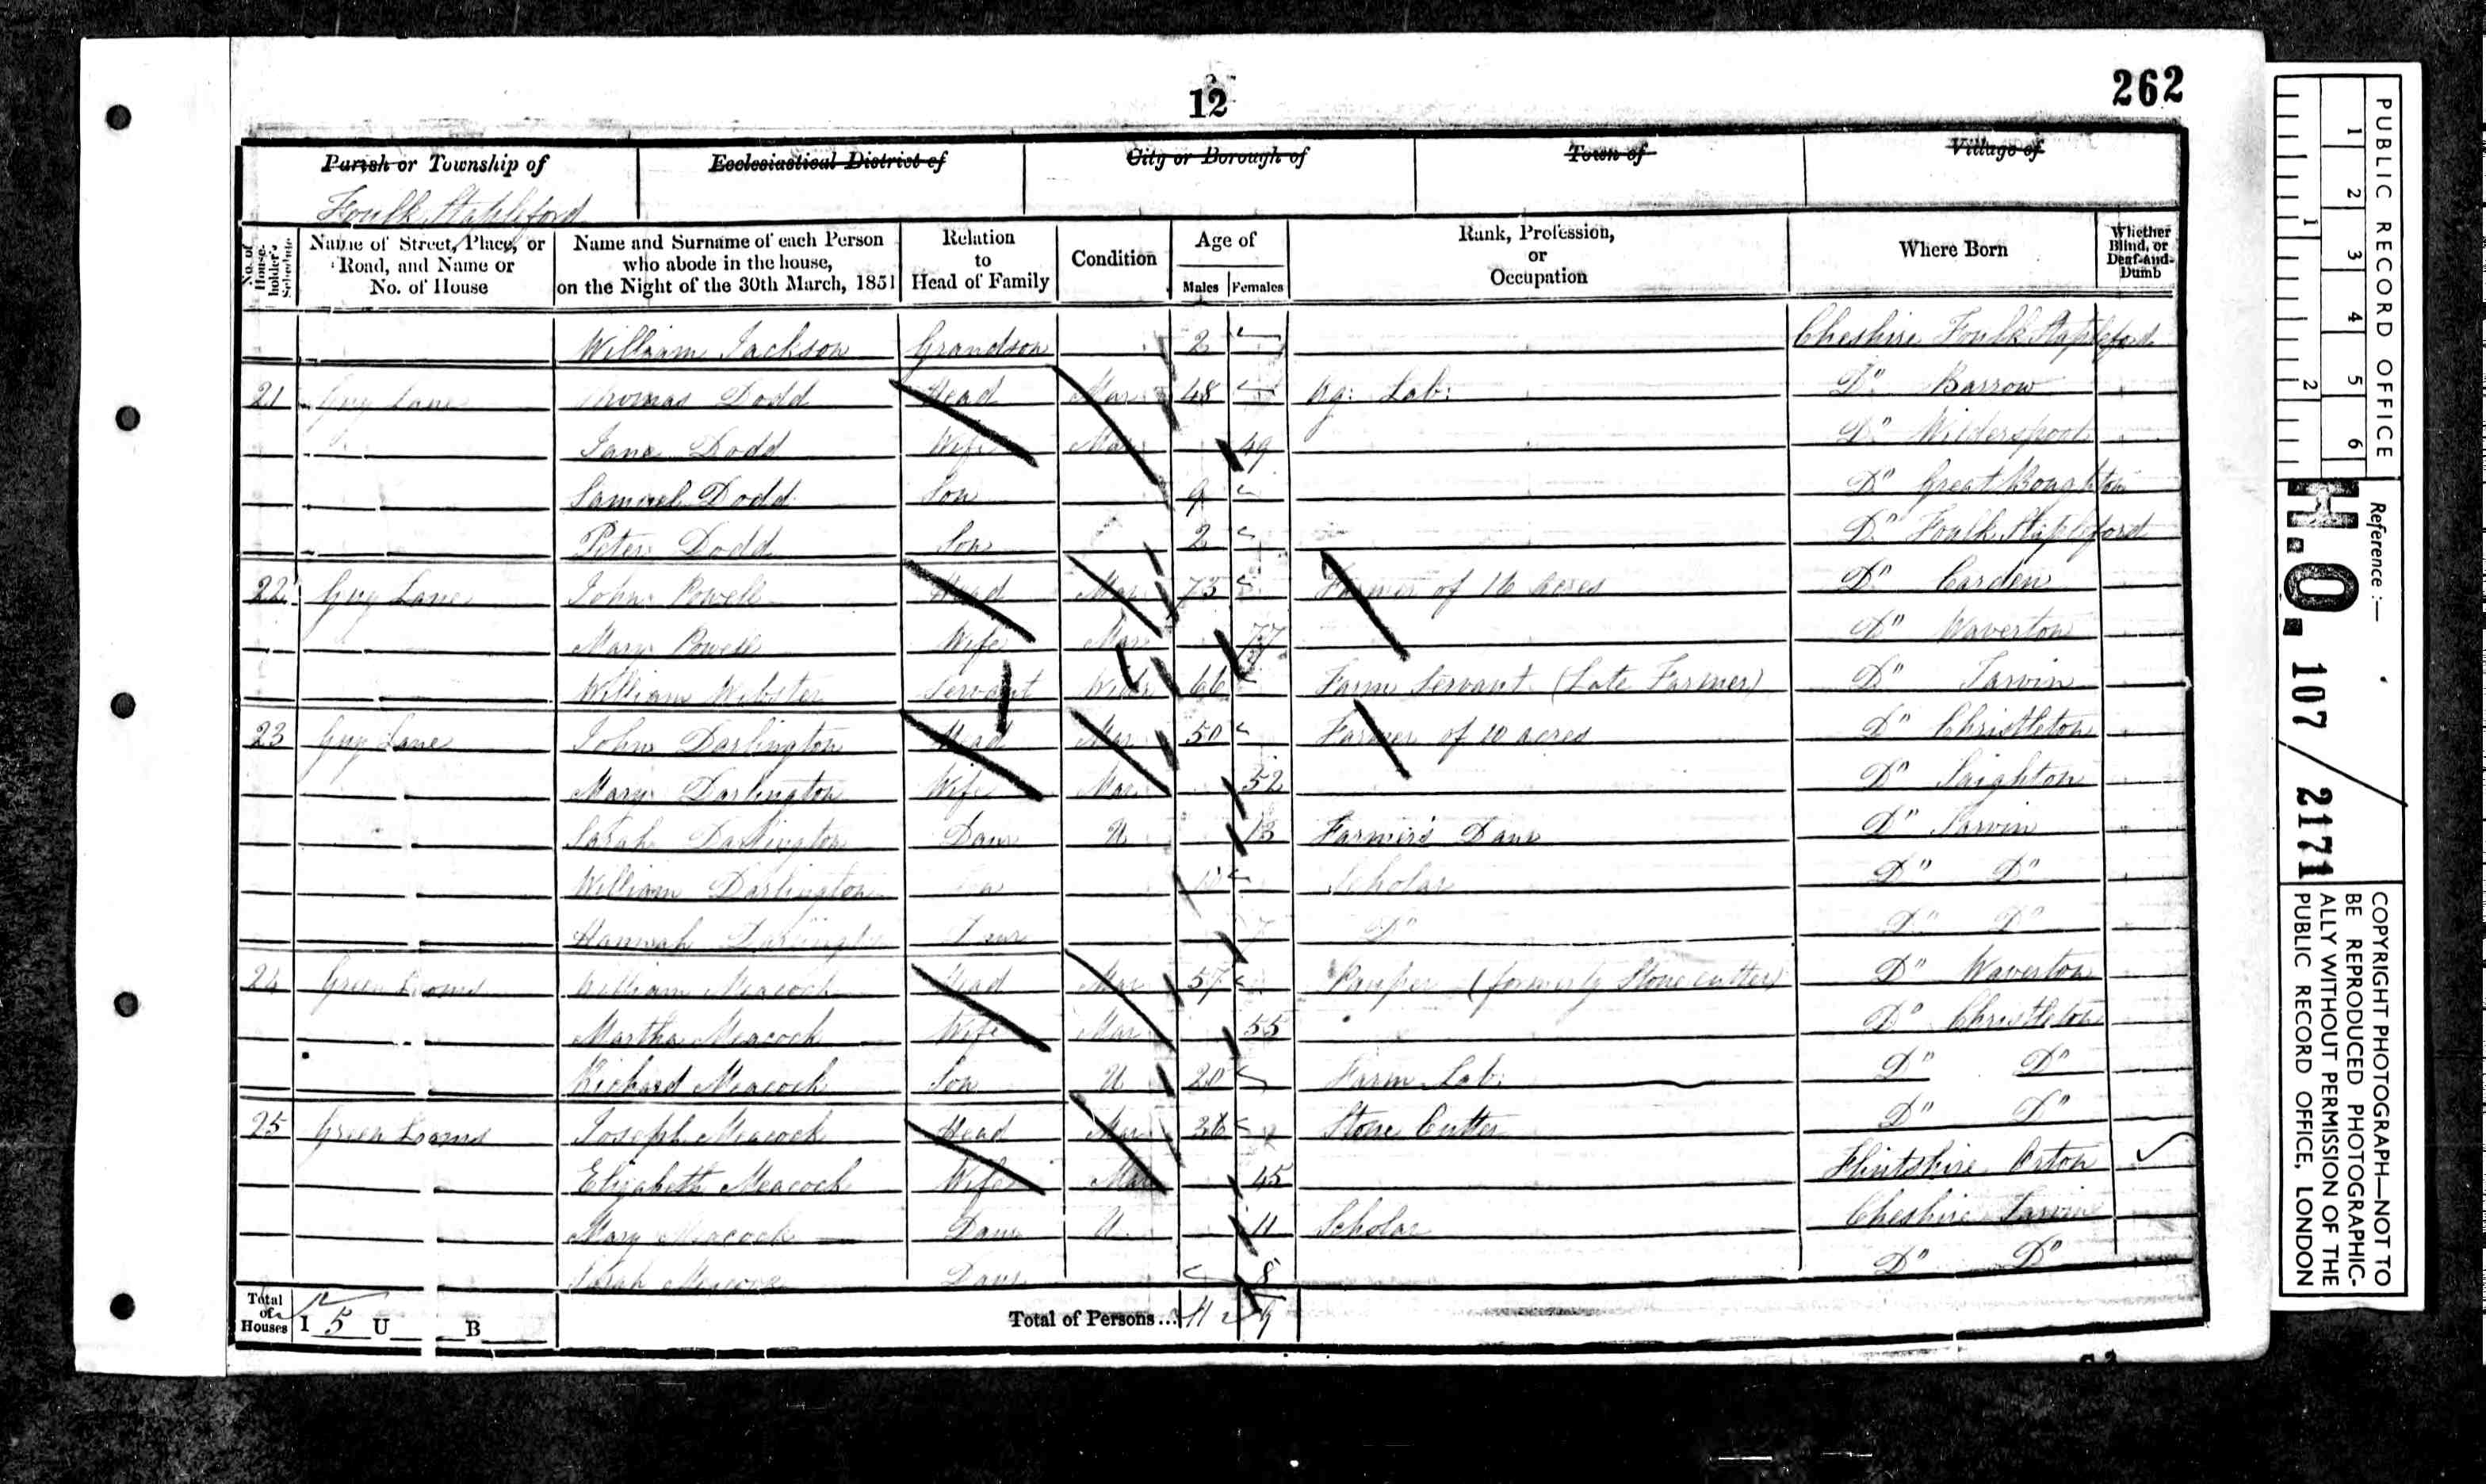 262
12
Parish or Township of
Ecclesiastical District of
City or Borough of
Town of
Village of
Foulk Stapleford
No. of House-holder's Schedule
Name of Street, Place, or Road, and Name or No. of House
Name and Surname of each Person who abode in the house, on the Night of the 30th March, 1851
Relation to Head of Family
Condition
Age of
Males
Females
Rank, Profession, or Occupation
Where Born
Whether Blind, or Deaf-and-Dumb
William Jackson Grandson 2 Cheshire Foulk Stapleford
21 Guy Lane Thomas Dodd Head Mar 48 Ag: Lab: Do Barrow
Jane Dodd Wife Mar 49 Do Wilderspool
Samuel Dodd Son 9 Do Great Boughton
Peter Dodd Son 2 Do Foulk Stapleford
22 Guy Lane John Powell Head Mar 75 Farmer of 16 acres Do Carden
Mary Powell Wife Mar 77 Do Waverton
William Webster Servant Widr 66 Farm Servant (Late Farmer) Do Tarvin
23 Guy Lane John Darlington Head Mar 50 Farmer of 10 acres Do Christleton
Mary Darlington Wife Mar 52 Do Saighton
Sarah Darlington Daur U 13 Farmer's Daur Do Tarvin
William Darlington Son Scholar Do Do
Hannah Darlington Daur 7 Do Do Do
24 Green Looms William Meacock Head Mar 57 Pauper (formerly Stone cutter) Do Waverton
Martha Meacock Wife Mar 55 Do Christleton
Richard Meacock Son U 20 Farm Lab: Do Do
25 Green Looms Joseph Meacock Head Mar 36 Stone Cutter Do Do
Elizabeth Meacock Wife Mar 45 Flintshire Orton
Mary Meacock Daur U 11 Scholar Cheshire Tarvin
Sarah Meacock Daur 8 Do Do
Total of Houses I 5 U B
Total of Persons... 11 9
PUBLIC RECORD OFFICE
1 2 3 4 5 6
1 2
Reference :—
H.O. 107 / 2171
COPYRIGHT PHOTOGRAPH—NOT TO
BE REPRODUCED PHOTOGRAPHIC-
ALLY WITHOUT PERMISSION OF THE
PUBLIC RECORD OFFICE, LONDON